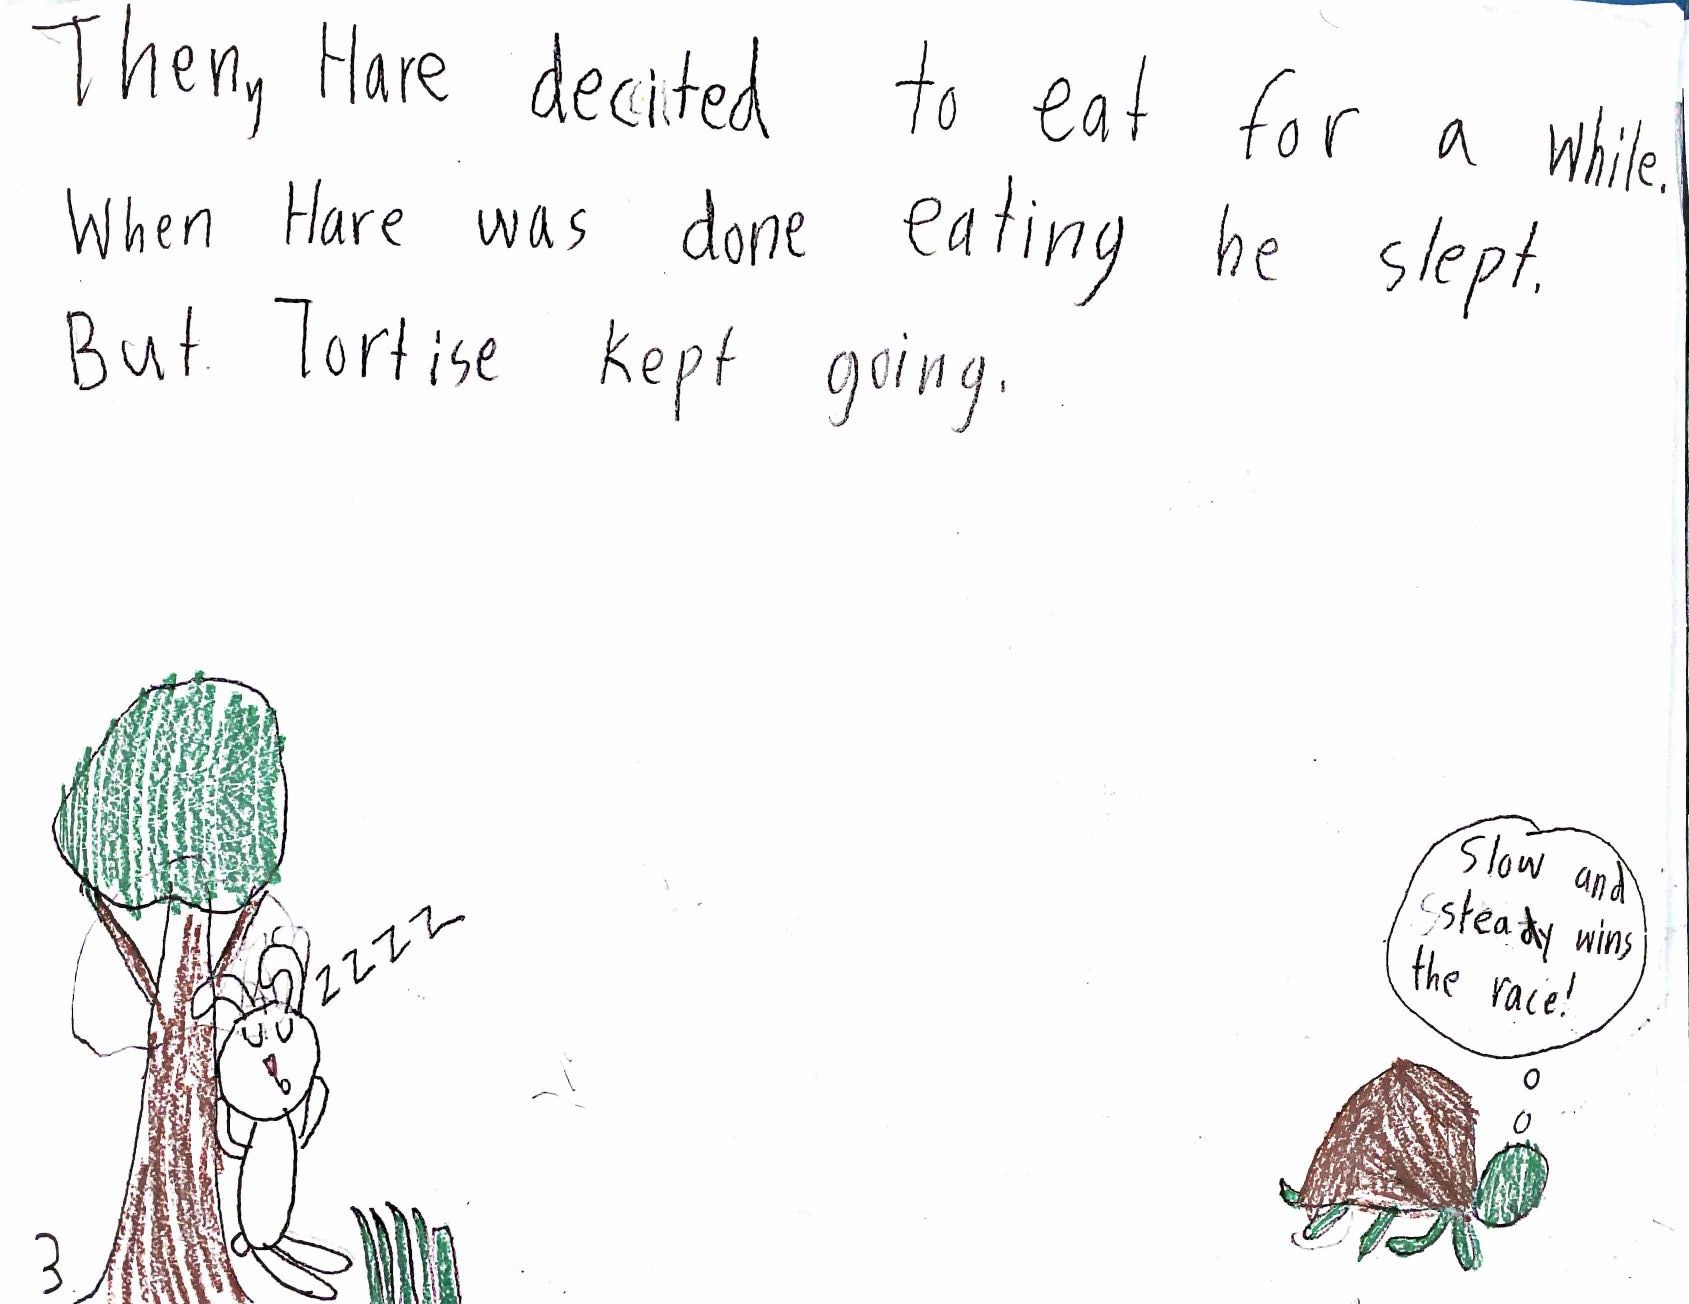 Then, Hare decited to eat for a while.
When Hare was done eating he slept.
But Tortise kept going.
zzzz
Slow and
steady wins
the race!
3